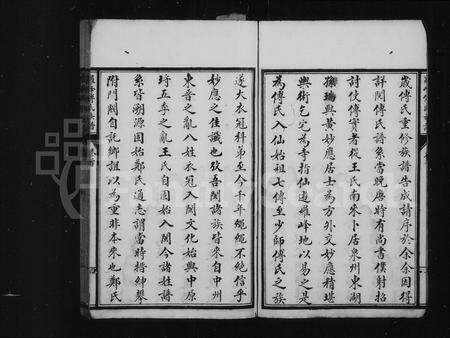 歲傅氏重修族譜告成請序於余余因得
詳閱傅氏譜系當晚唐時有尚書僕射招
討使傅實者從王氏南來卜居泉州東湖
與黃妙應居士為方外交妙應精堪
輿術乞宅為手指仙遊羅峰地以易之是
為傅氏入仙始祖七傳至少師傅氏之族
遂大衣冠科第至今千年繩繩不絕信乎
妙應之佳識也攷吾閩諸族皆來自中州
東晉之亂八姓衣冠入閩文化始興中原
五季之亂王氏自固始入閩今諸姓譜
系皆溯源固始鄭氏通志謂當時搢紳攀
附門閥自託鄉誼以為重非本來也鄭氏